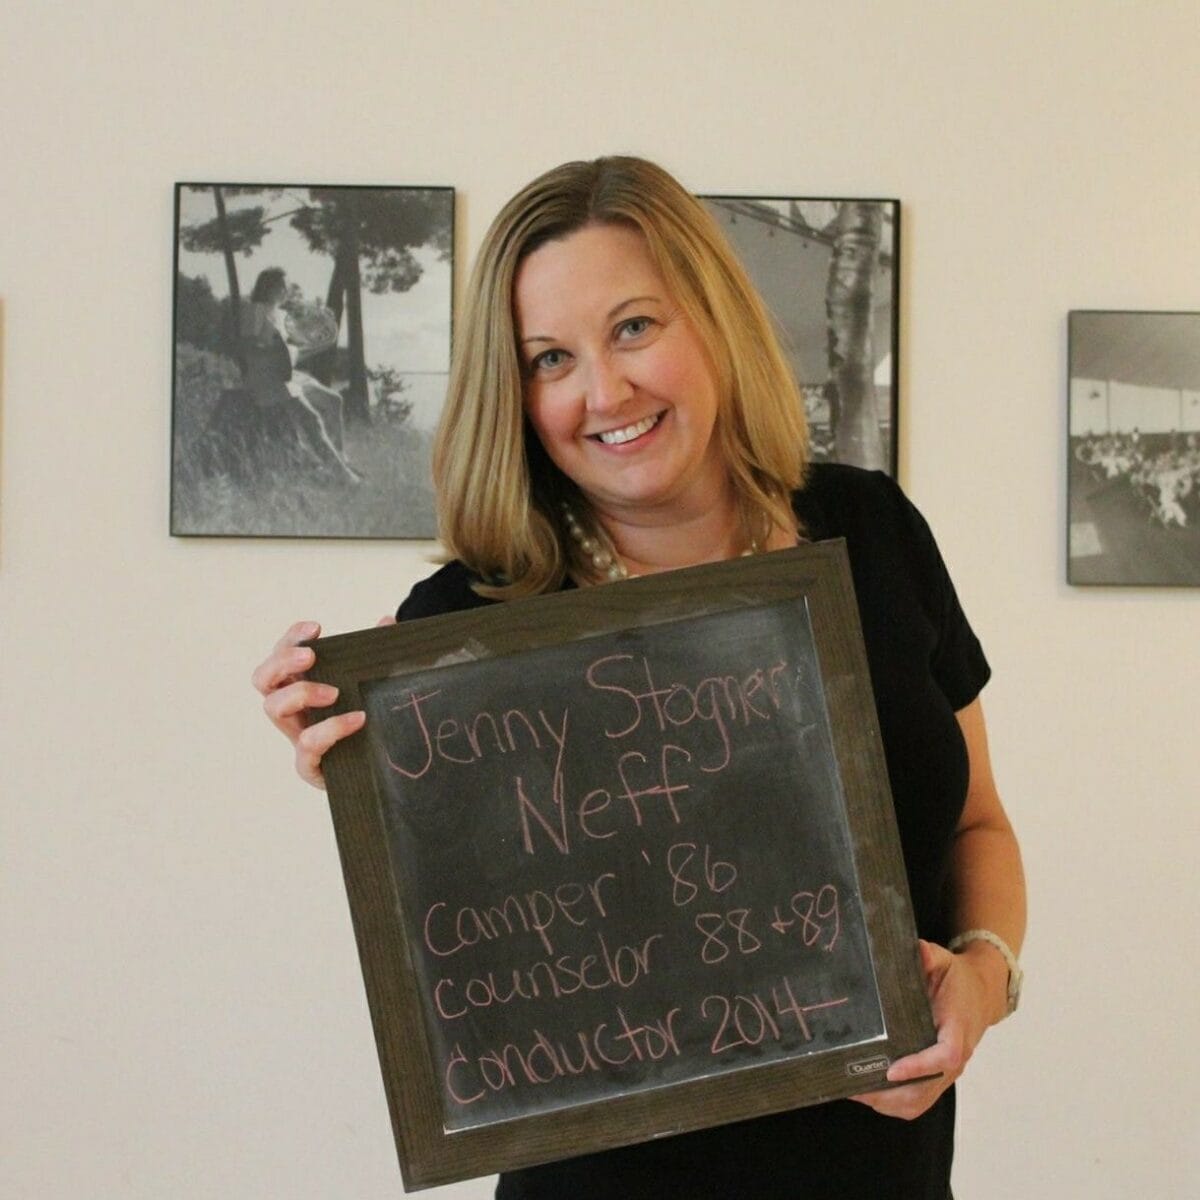 Jenny Stogner
Neff
Camper '86
counselor 88 + 89
conductor 2014—
Quartet